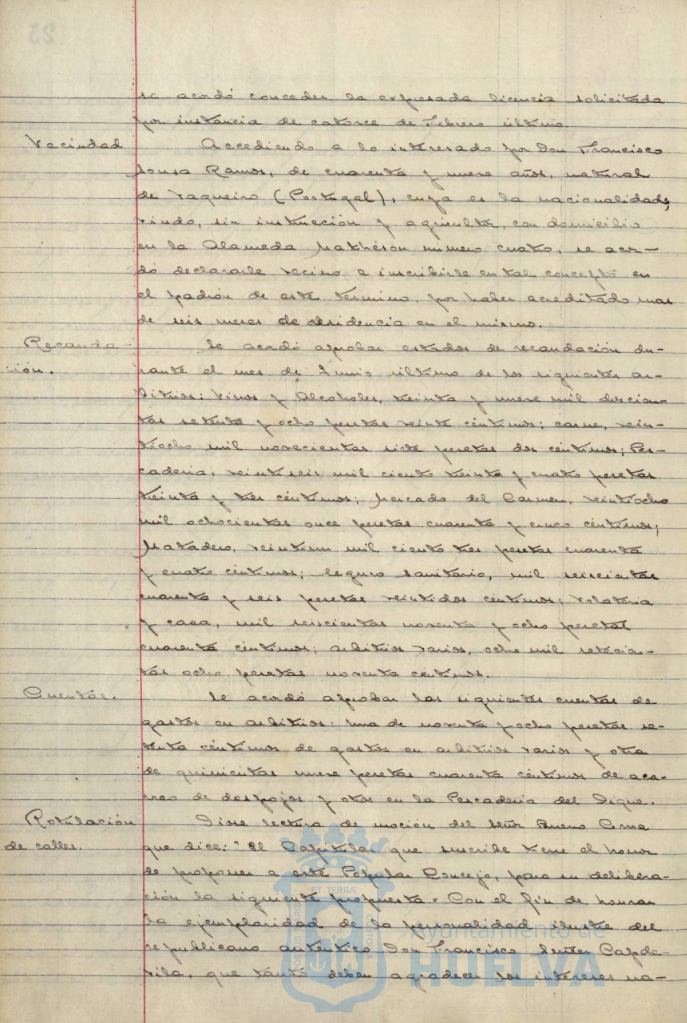 se acordó conceder la expresada licencia solicitada
por instancia de catorce de Febrero último.
Vecindad
Accediendo a lo interesado por Don Francisco
Sousa Ramos, de cuarenta y nueve años, natural
de Vaqueiro (Portugal), cuya es la nacionalidad,
viudo, sin instrucción y agricultor, con domicilio
en la Alameda Matheson número cuatro, se acor-
dó declararle vecino e inscribirle en tal concepto en
el padrón de este término, por haber acreditado mas
de seis meses de residencia en el mismo.
Recauda-
ción.
Se acordó aprobar estados de recaudación du-
rante el mes de Junio último de los siguientes ar-
bitrios: Vinos y Alcoholes, treinta y nueve mil doscien-
tas setenta y ocho pesetas veinte céntimos; carne, vein-
tiocho mil novecientas siete pesetas dos céntimos; Pes-
cadería, veintiseis mil ciento treinta y cuatro pesetas
treinta y tres céntimos; Mercado del Carmen, veintiocho
mil ochocientas once pesetas cuarenta y cinco céntimos;
Matadero, veintiun mil ciento tres pesetas cuarenta
y cuatro céntimos; Seguro Sanitario, mil seiscientas
cuarenta y seis pesetas veintidos céntimos; volatería
y caza, mil seiscientas noventa y ocho pesetas
cuarenta céntimos; arbitrios varios, ocho mil setecien-
tas ocho pesetas noventa céntimos.
Cuentas.
Se acordó aprobar las siguientes cuentas de
gastos en arbitrios: Una de noventa y ocho pesetas se-
tenta céntimos de gastos en arbitrios varios y otra
de quinientas nueve pesetas cuarenta céntimos de aca-
rreo de despojos y otros en la Pescadería del Dique.
Rotulación
de calles.
Diose lectura de moción del Señor Bueno Cima
que dice: "El Capitular que suscribe tiene el honor
de proponer a este Popular Concejo, para su delibera-
ción la siguiente propuesta = Con el fin de honrar
la ejemplaridad de la personalidad ilustre del
republicano auténtico Don Francisco Suñer Capde-
vila, que tanto deben agradecer los intereses na-
Ayuntamiento de
HUELVA